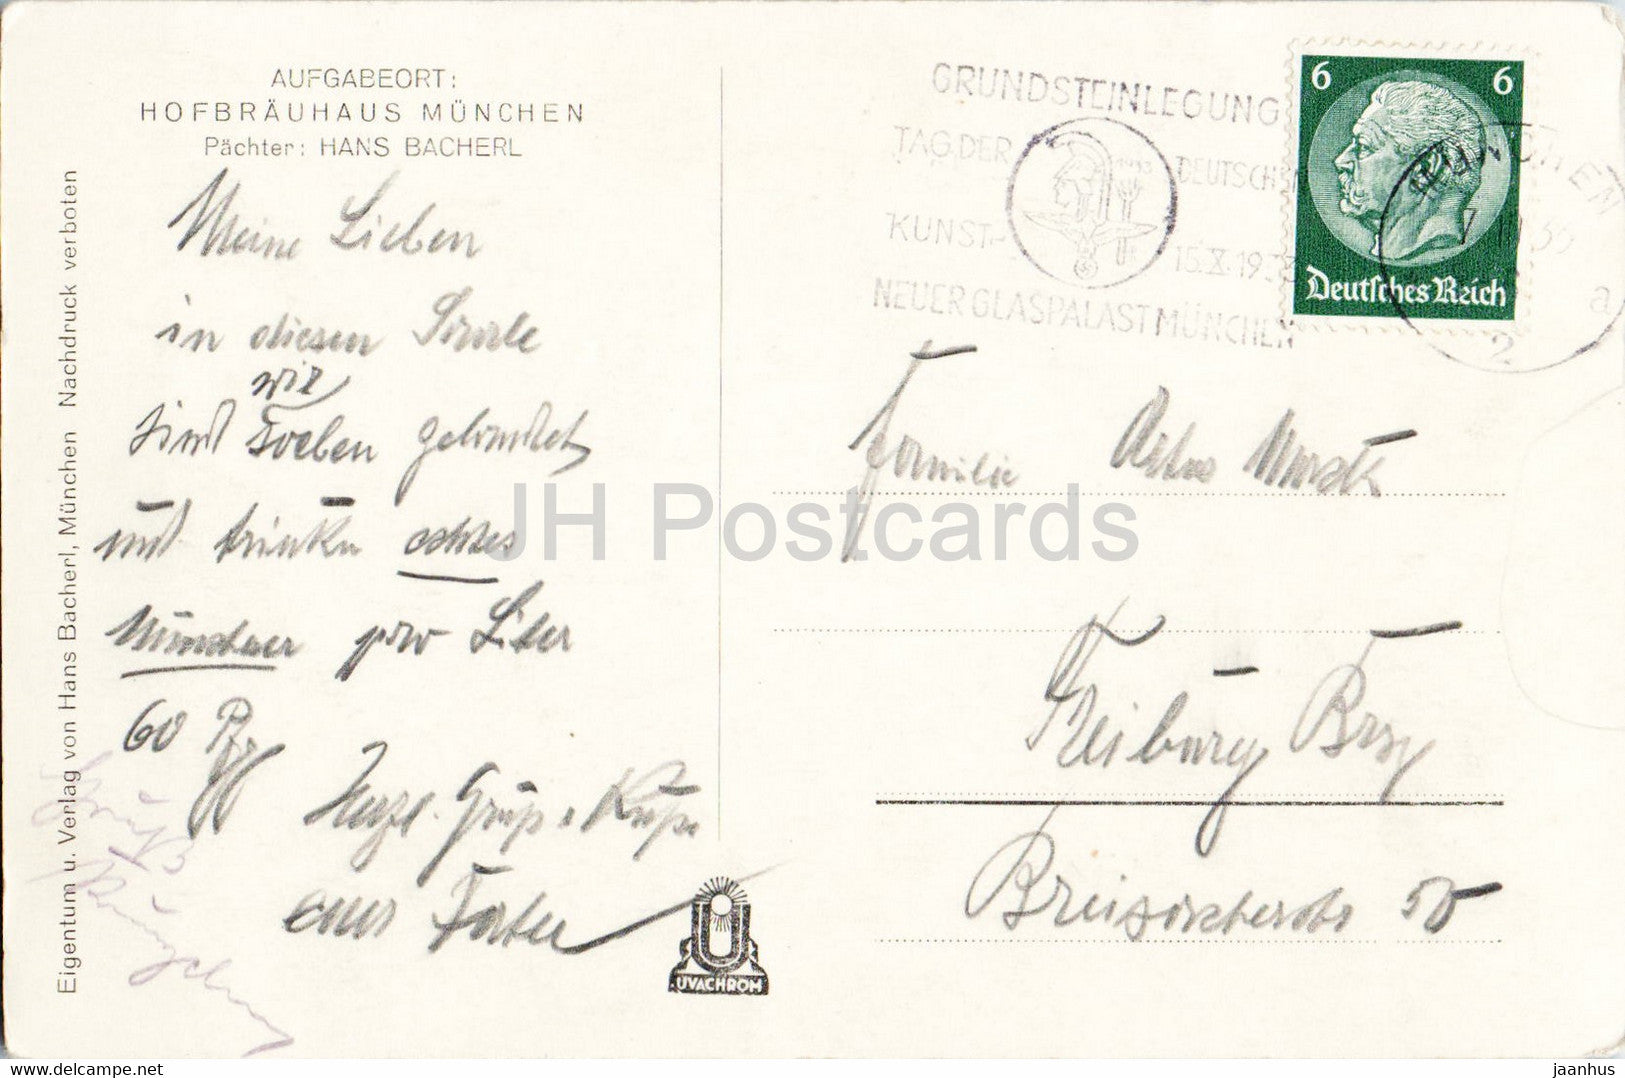 AUFGABEORT:
HOFBRÄUHAUS MÜNCHEN
Pächter: HANS BACHERL
Eigentum u. Verlag von Hans Bacherl, München Nachdruck verboten
Meine Lieben
in diesem Saale
wir
sind soeben gelandet
und trinken echtes
Münchner pro Liter
60 Pfg
Herzl. Gruß u Küße
euer Vater
GRUNDSTEINLEGUNG
TAG DER DEUTSCHEN
KUNST-
15.X.1933
NEUER GLASPALAST MÜNCHEN
6 6
Deutsches Reich
MÜNCHEN
2 a
Familie
Freiburg Brsg
Breisacherstr 50
UVACHROM
JH Postcards
© delcampe.net
jaanhus